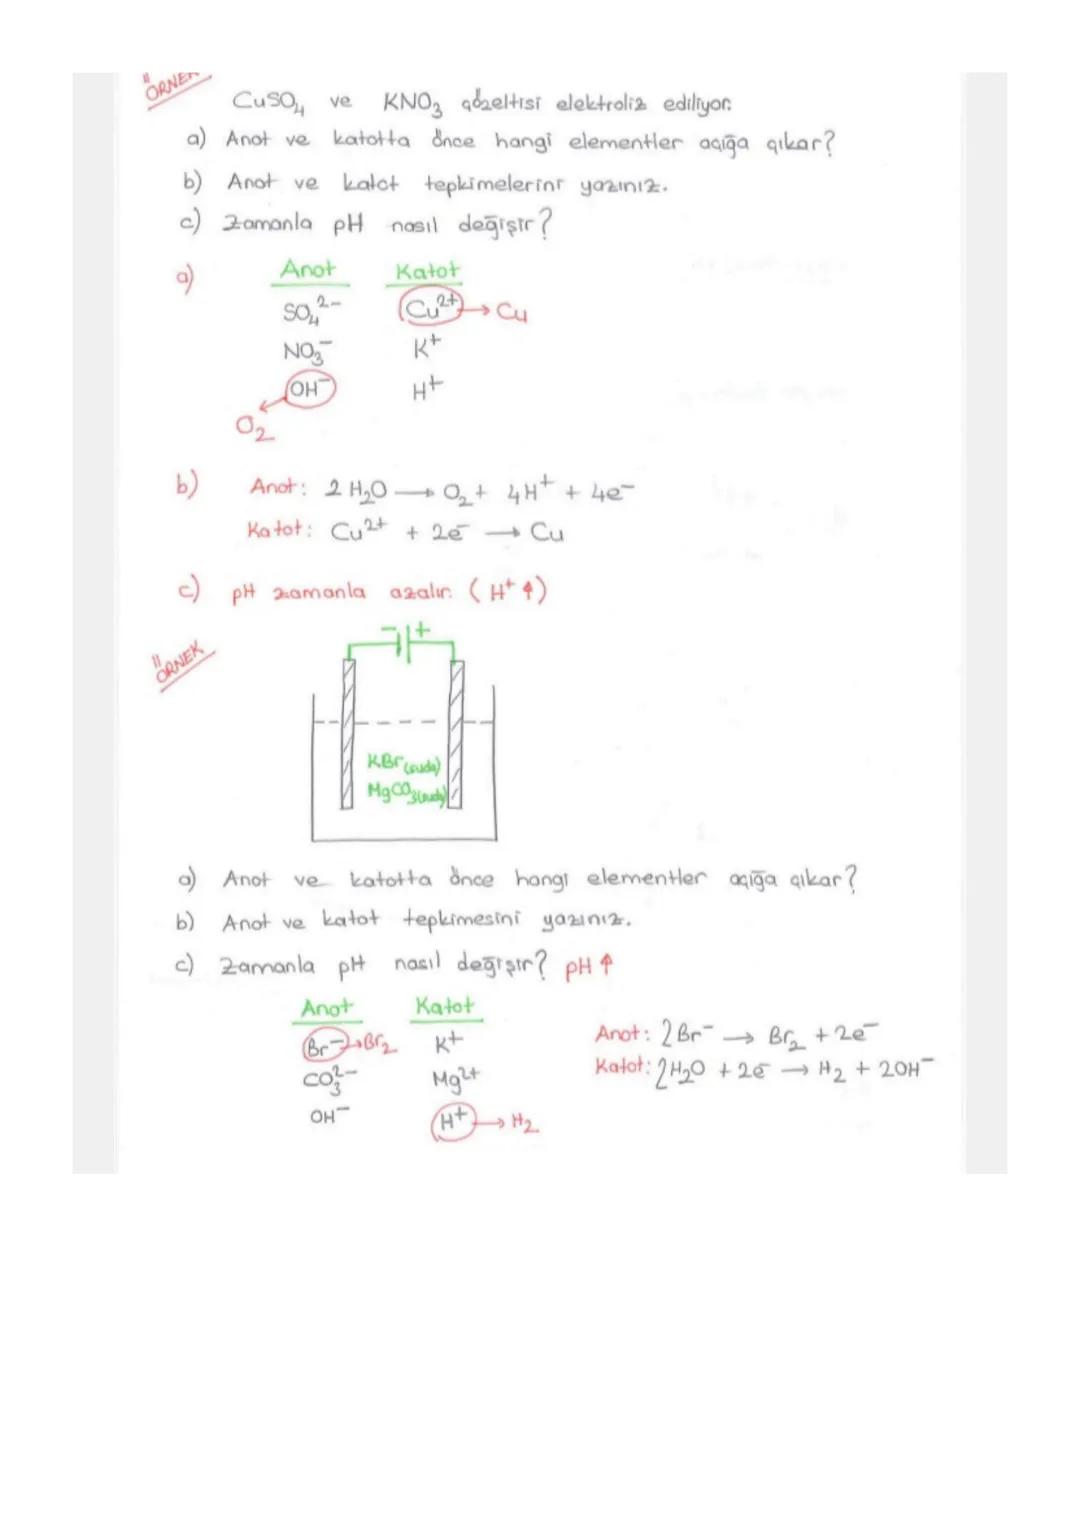 ÖRNEK
CuSO₄ ve KNO₃ çözeltisi elektroliz ediliyor.
a) Anot ve katotta önce hangi elementler açığa çıkar?
b) Anot ve katot tepkimelerini yazınız.
c) Zamanla pH nasıl değişir?
a) Anot Katot
SO₄²⁻ Cu²⁺ → Cu
NO₃⁻ K⁺
OH⁻ H⁺
O₂
b) Anot: 2 H₂O → O₂ + 4H⁺ + 4e⁻
Katot: Cu²⁺ + 2e⁻ → Cu
c) pH zamanla azalır. (H⁺ ↑)
ÖRNEK
- +
KBr(suda)
MgCO₃(suda)
a) Anot ve katotta önce hangi elementler açığa çıkar?
b) Anot ve katot tepkimesini yazınız.
c) Zamanla pH nasıl değişir? pH ↑
Anot Katot
Br⁻ → Br₂ K⁺
CO₃²⁻ Mg²⁺
OH⁻ H⁺ → H₂
Anot: 2Br⁻ → Br₂ + 2e⁻
Katot: 2H₂O + 2e⁻ → H₂ + 2OH⁻